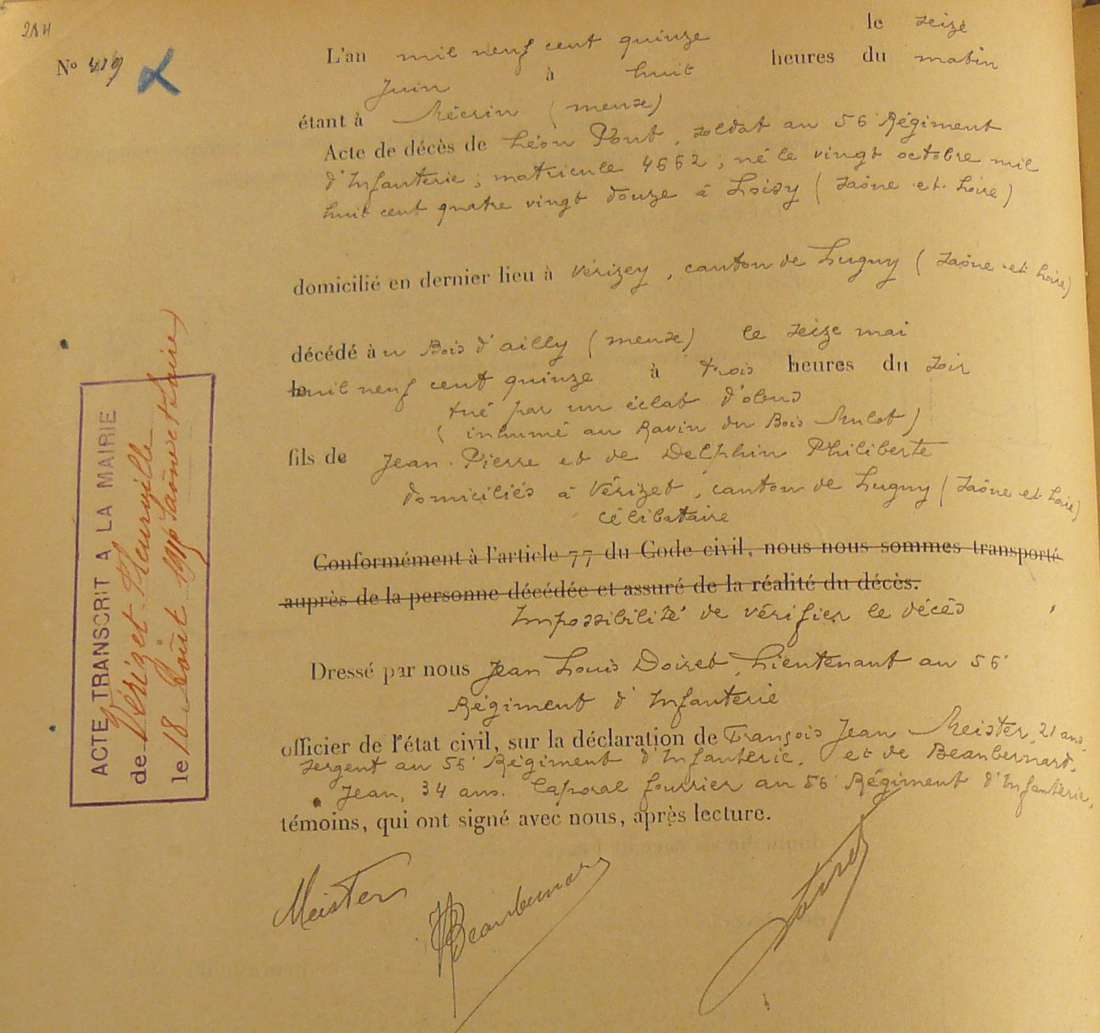 284
N° 419
L'an mil neuf cent quinze le seize
Juin à huit heures du matin
étant à Mécrin (meuse)
Acte de décès de Léon Pont, soldat au 56e Régiment
d'Infanterie; matricule 4662; né le vingt octobre mil
huit cent quatre vingt douze à Loisy (Saône-et-Loire)
domicilié en dernier lieu à Vérizey, canton de Lugny (Saône et Loire)
décédé au Bois d'ailly (meuse) le seize mai
le mil neuf cent quinze à trois heures du soir
tué par un éclat d'obus
(inhumé au Ravin du Bois Mulot)
fils de Jean-Pierre et de Delphin Philiberte
domiciliés à Vérizet, canton de Lugny (Saône et Loire)
célibataire
Conformément à l'article 77 du Code civil, nous nous sommes transporté
auprès de la personne décédée et assuré de la réalité du décès.
Impossibilité de vérifier le décès
Dressé par nous Jean Louis Doiret, Lieutenant au 56e
Régiment d'Infanterie
officier de l'état civil, sur la déclaration de François Jean Meister, 21 ans,
sergent au 56e Régiment d'Infanterie, et de Beaubernard,
Jean, 34 ans. Caporal fourrier au 56e Régiment d'Infanterie,
témoins, qui ont signé avec nous, après lecture.
Meister
Beaubernard
Doiret
ACTE TRANSCRIT A LA MAIRIE
de Vérizet-Fleurville
le 18 Août 1915 (Saône et Loire)